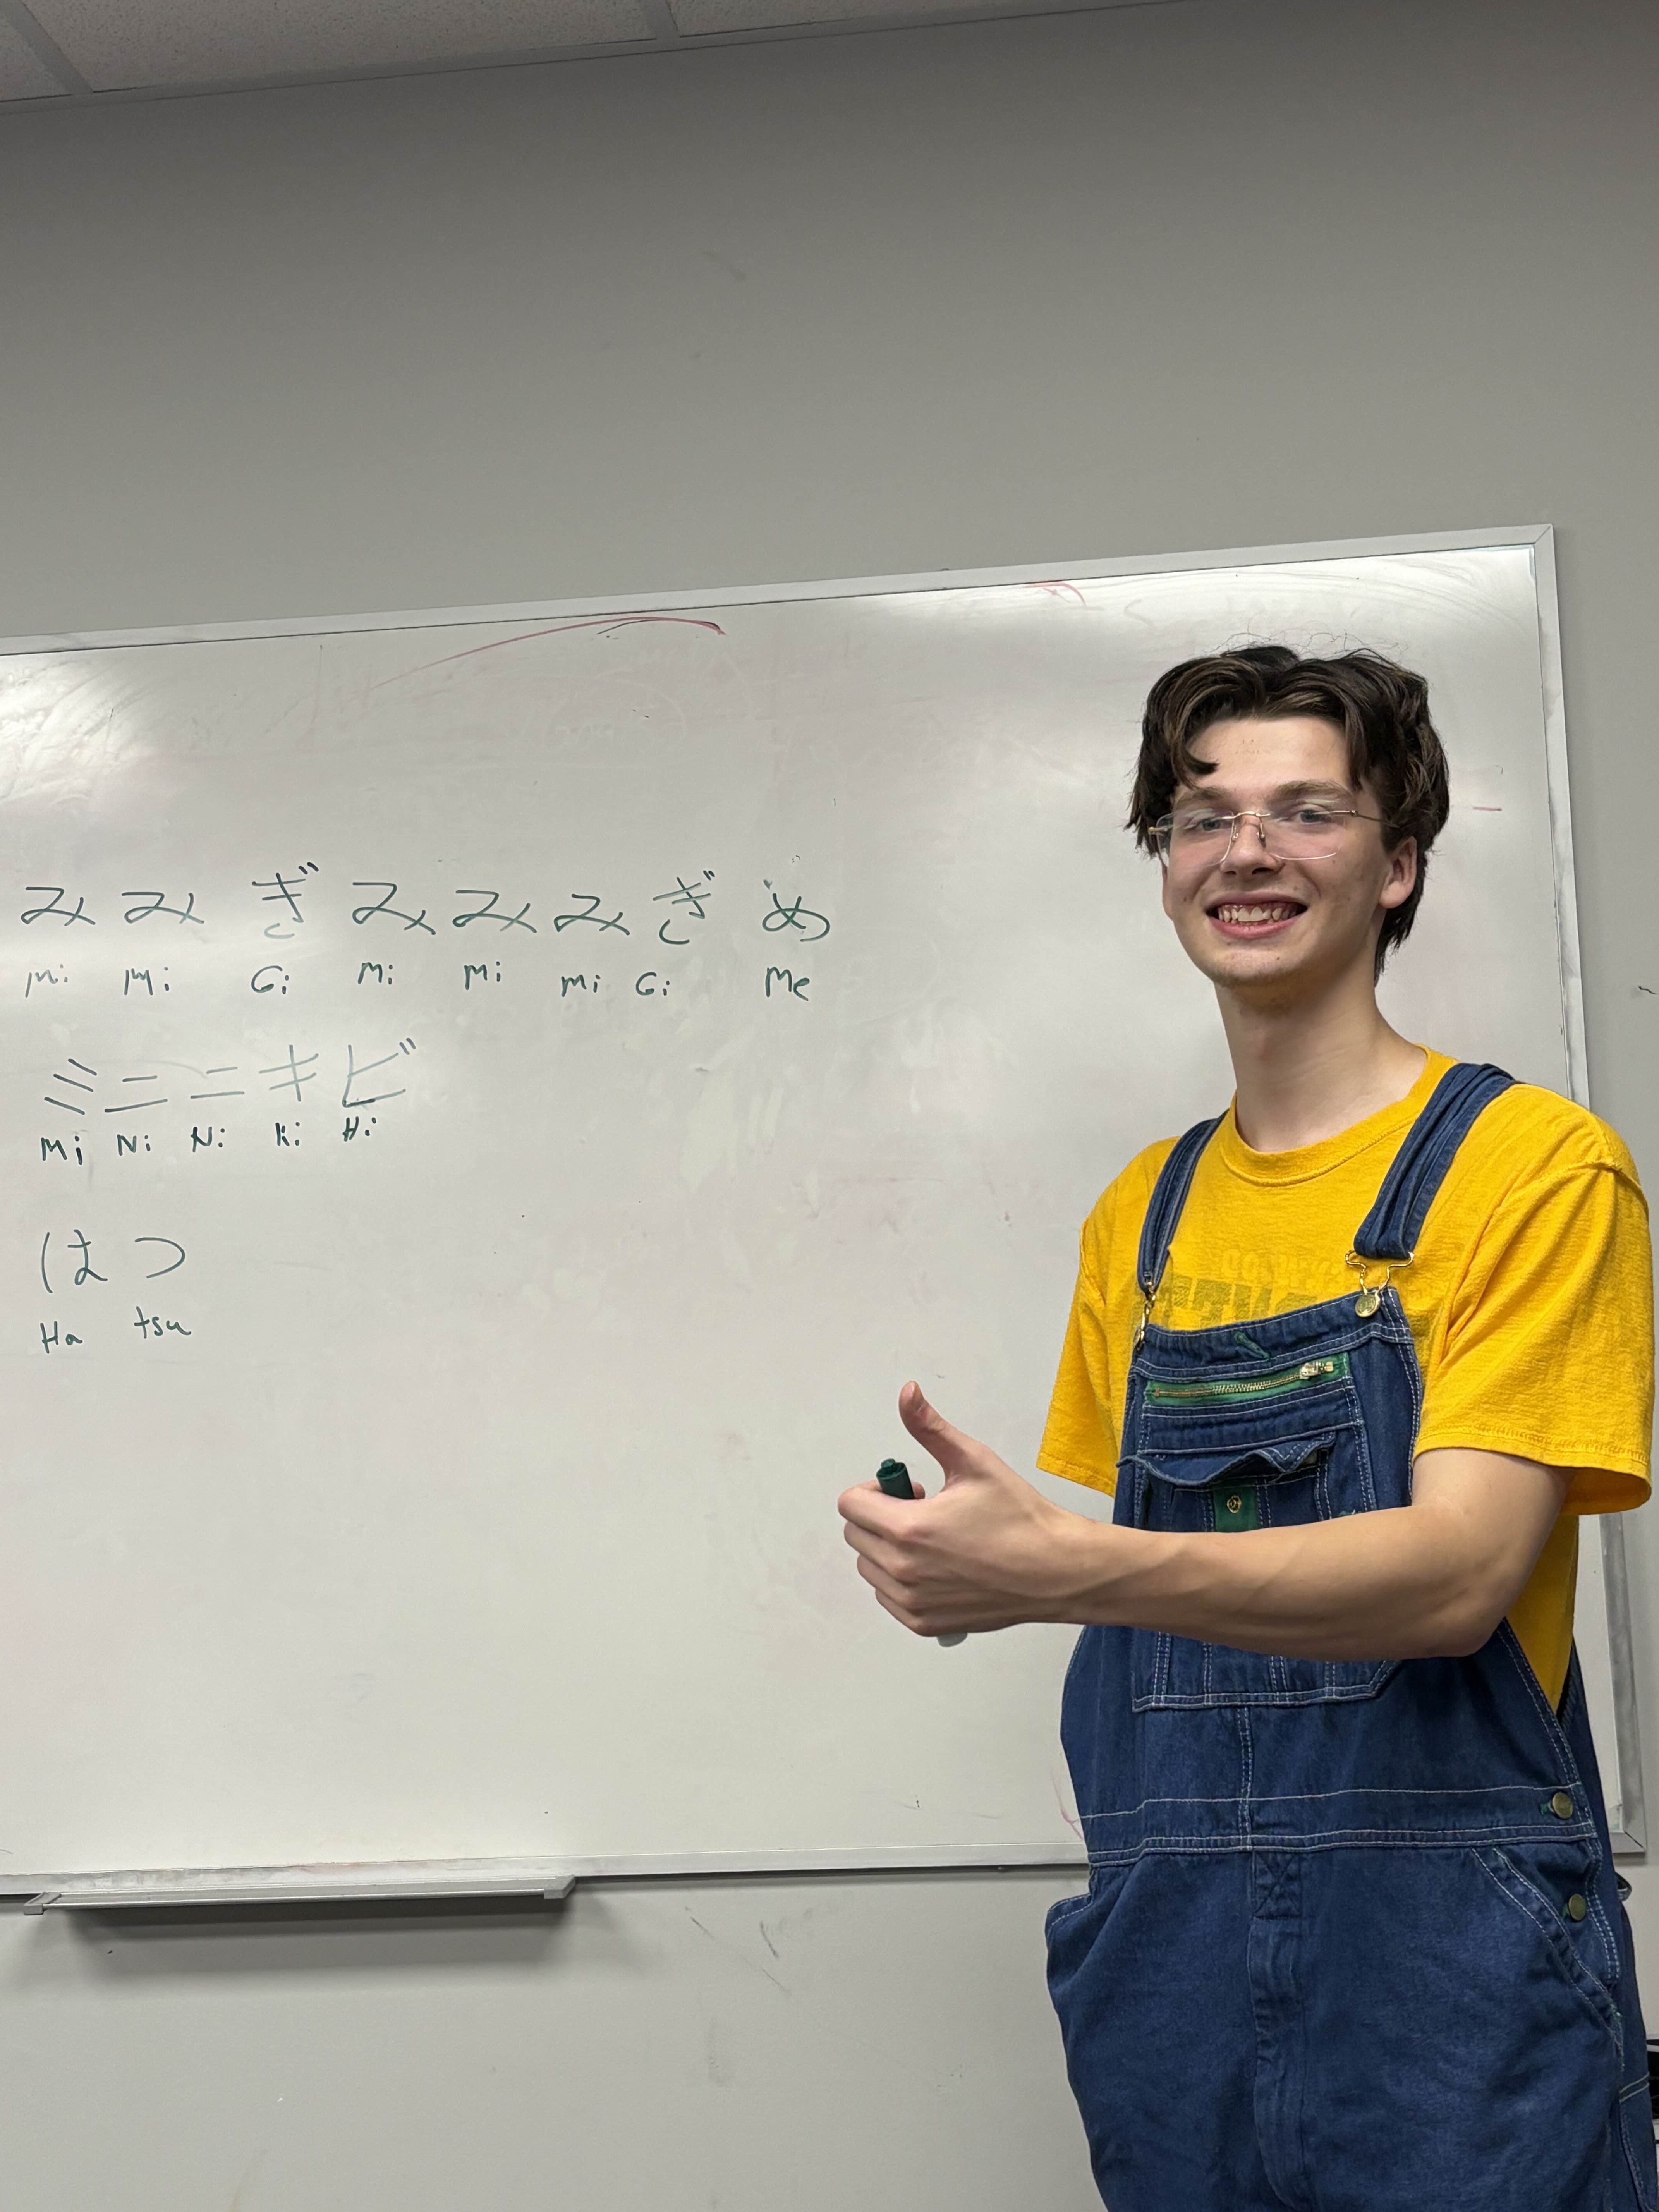 みみぎみみみぎめ
Mi Mi Gi Mi Mi Mi Gi Me
ミニニキビ
Mi Ni Ni Ki Hi
はつ
Ha tsu